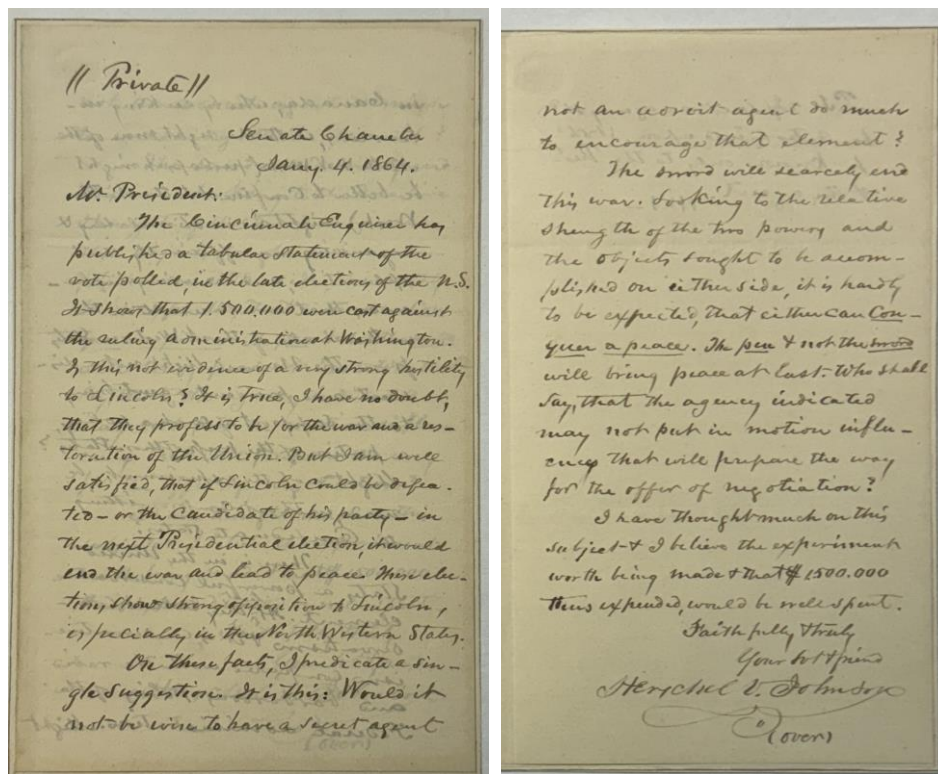 // Private //
Senate Chamber
Jany. 4. 1864.
Mr. President:
The Cincinnati Enquirer has
published a tabular statement of the
vote polled, in the late elections of the U.S.
It shows that 1.500,000 were cast against
the ruling administration at Washington.
Is this not evidence of a very strong hostility
to Lincoln? It is true, I have no doubt,
that they profess to be for the war and a res-
toration of the Union. But I am well
satisfied, that if Lincoln could be defea-
ted - or the candidate of his party - in
the next Presidential election, it would
end the war and lead to peace. These elec-
tions show strong opposition to Lincoln,
especially in the North Western States.
On these facts, I predicate a sin-
gle suggestion. It is this: Would it
not be wise to have a secret agent
not an adroit agent do much
to encourage that element?
The sword will scarcely end
this war. Looking to the relative
strength of the two powers and
the objects sought to be accom-
plished on either side, it is hardly
to be expected, that either can Con-
quer a peace. The pen & not the sword
will bring peace at last. Who shall
say, that the agency indicated
may not put in motion influ-
ences that will prepare the way
for the offer of negotiation?
I have thought much on this
subject & I believe the experiment
worth being made & that $1500.000
thus expended, would be well spent.
Faithfully & truly
Your svt & friend
Herschel V. Johnson
(over)